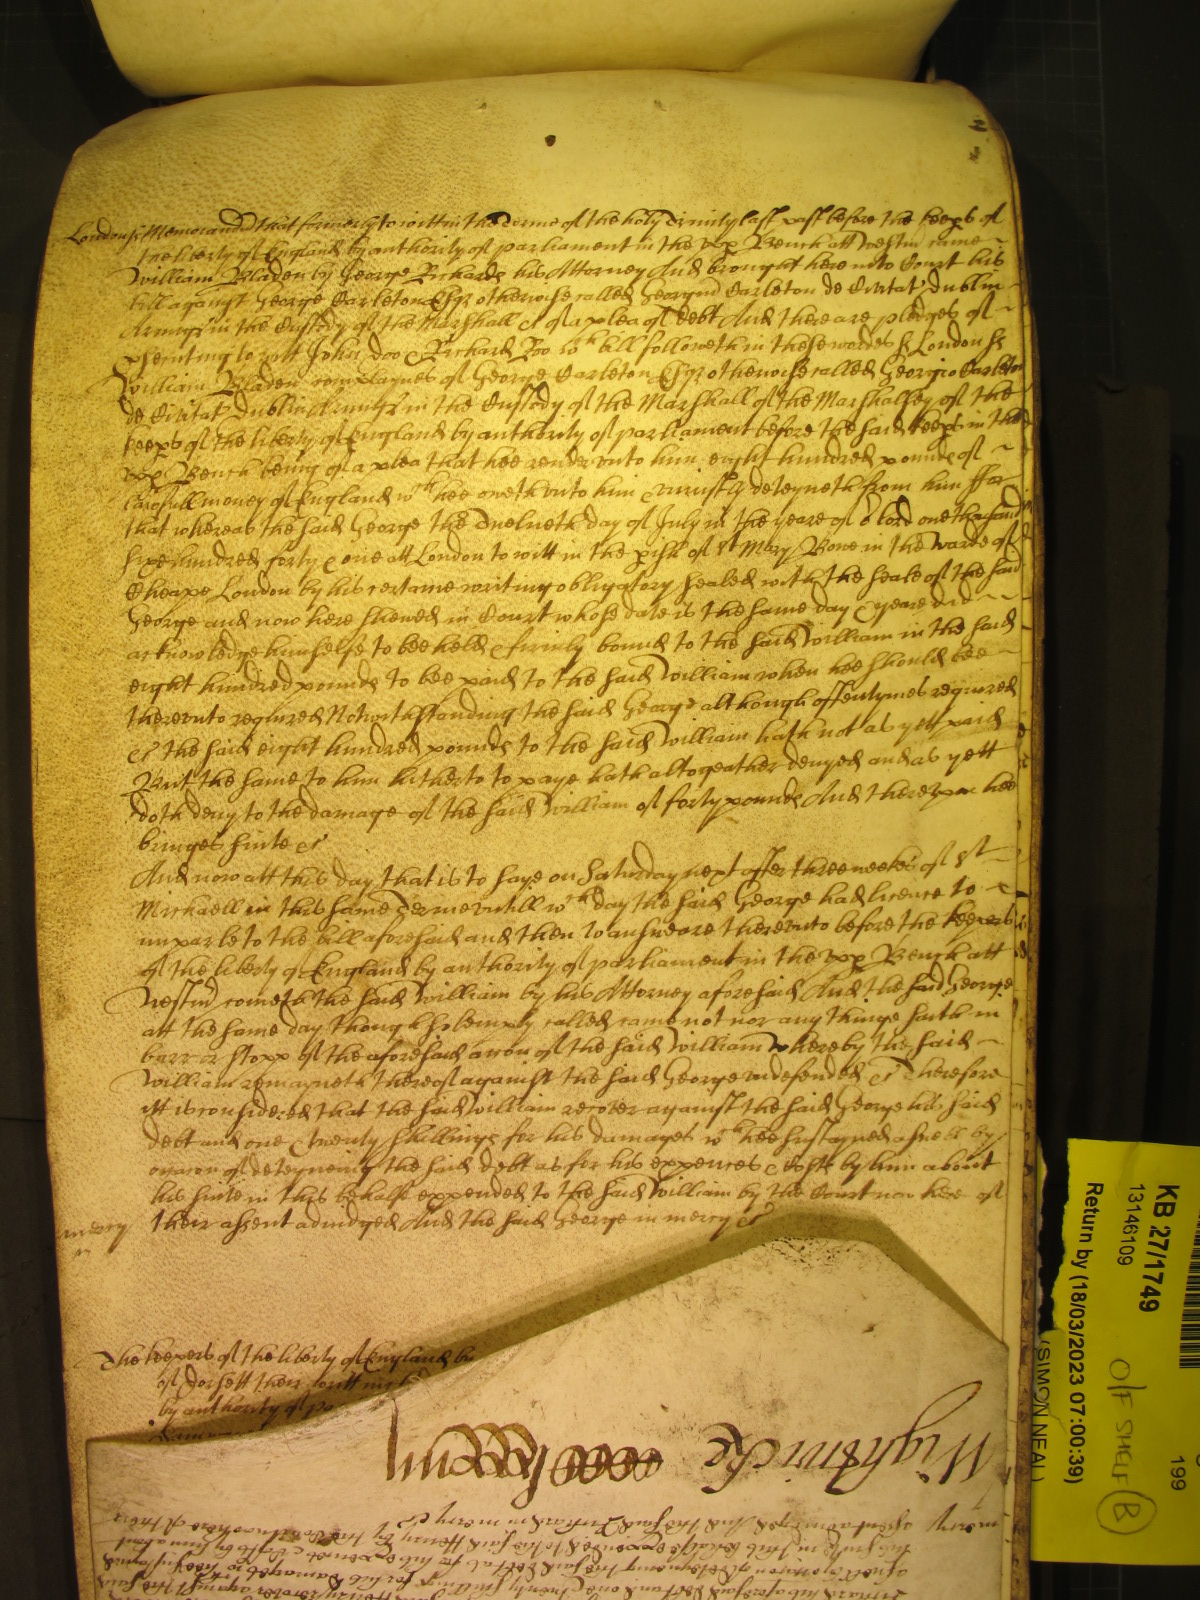 London ss Memorand that formerly to witt in the Terme of the holy Trinity last past before the keeps of
the liberty of England by authority of parliament in the upp Bench att Westm came
William Bladen by George Richards his Attorney And brought here into Court his
bill against George Carleton Esqr otherwise called Georgiu Carleton de Civitat Dublin
Armig in the Custody of the Marshall &c of a plea of debt And there are pledges of
psecuting to witt John Doo & Richard Roo wch bill followeth in these wordes ss London ss
William Bladen complaynes of George Carleton Esqr otherwise called Georgio Carleton
de Civitat Dublin Armig in the Custody of the Marshall of the Marshalley of the
keeps of the liberty of England by authority of parliament before the said keeps in the
upp Bench being of a plea that hee render unto him eight hundred pounds of
lawfull money of England wch hee oweth unto him & uniustly deteyneth from him ffor
that whereas the said George the Twelueth day of July in the yeare of or lord one thousand
sixe hundred forty & one att London to witt in the pish of St Mary Bowe in the Warde of
Cheape London by his certaine writing obligatory sealed with the seale of the said
George and now here shewed in Court whose date is the same day & yeare did
acknowledge himselfe to bee held & firmly bound to the said William in the said
eight hundred pounds to bee paid to the said William when hee should bee
thereunto required Notwithstanding the said George although oftentymes required
&c the said eight hundred pounds to the said William hath not as yett paid
But the same to him hitherto to paye hath altogeather denyed and as yett
doth deny to the damage of the said William of forty pounds And thereupon hee
bringes suite &c
And now att this day that is to saye on Saturday next after three weekes of St
Michaell in this same Terme untill wch day the said George had licence to
imparle to the bill aforesaid and then to answeare thereunto before the keepers
of the liberty of England by authority of parliament in the upp Bench att
Westm cometh the said William by his Attorney aforesaid And the said George
att the same day though solempnly called came not nor any thinge saith in
barr or stopp of the aforesaid accon of the said William whereby the said
William remayneth thereof against the said George undefended &c Therefore
itt is considered that the said William recover against the said George his said
debt and one & twenty shillings for his damages wch hee sustayned aswell by
occacon of deteyneing the said debt as for his expences & Costs by him about
his suite in this behalfe expended to the said William by the Court now here of
mercy their assent adiudged And the said George in mercy &c
The keepers of the liberty of England by
of Dorsett their writt
by authority of
Wightwicke
mercy assent adiudged And the said Richard in mercy &c
his suite in this behalfe expended to the said Henry by the Court now here of their
KB 27/1749
13146109
Return by (18/03/2023 07:00:39)
(SIMON NEAL)
199
O/F SHELF B